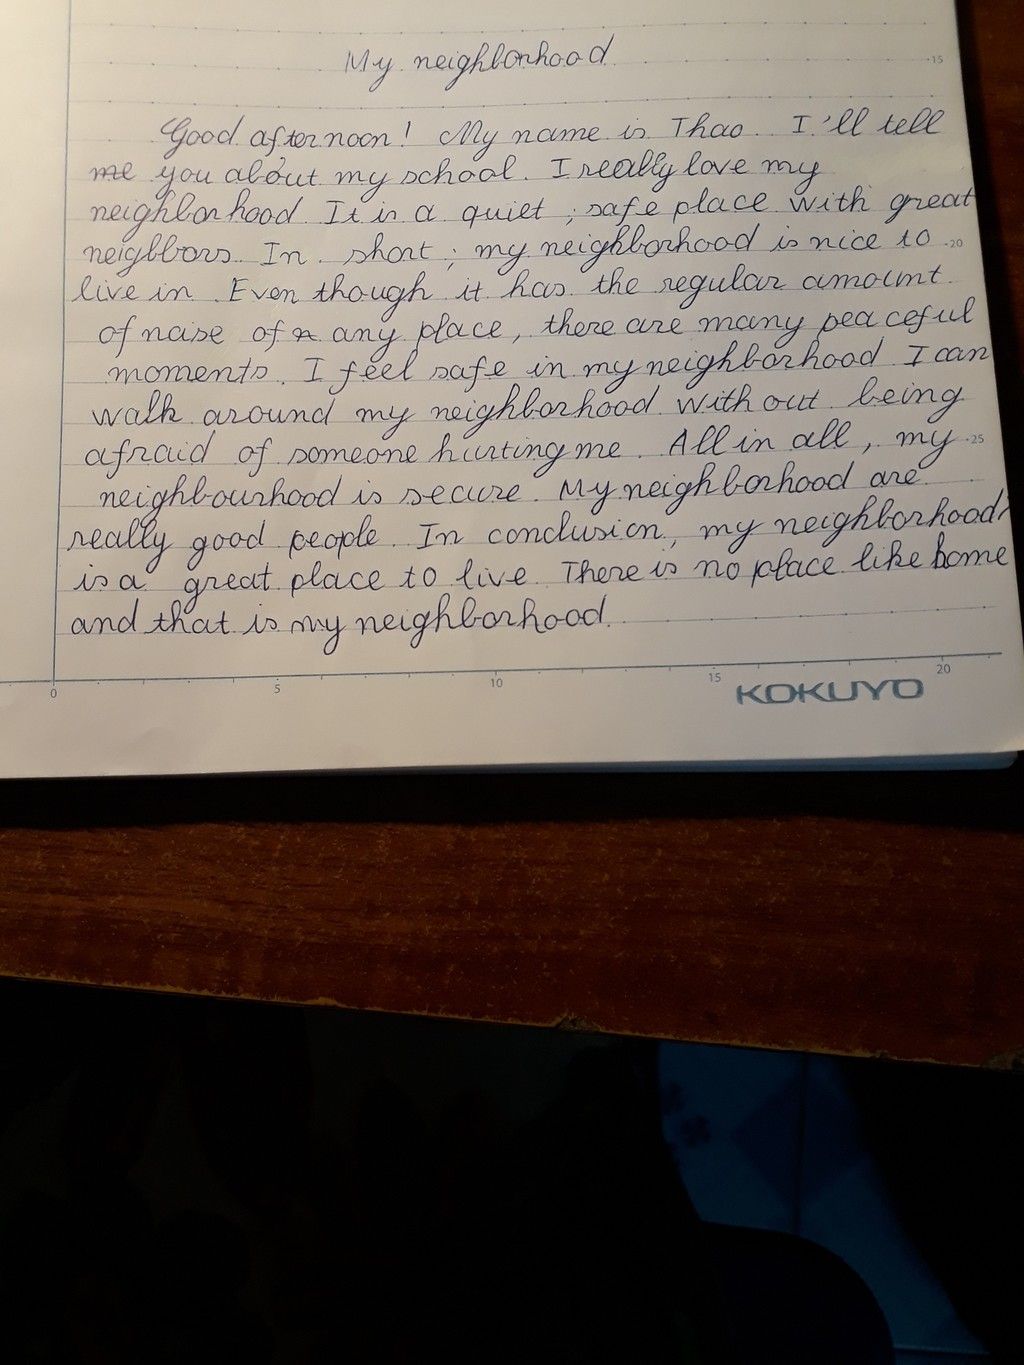 My neighborhood
15
Good afternoon! My name is Thao. I'll tell
me you about my school. I really love my
neighborhood. It is a quiet, safe place with great
neigbbors. In short, my neighborhood is nice to
20
live in. Even though it has the regular amount
of noise of any place, there are many peaceful
moments. I feel safe in my neighborhood I can
walk around my neighborhood without being
afraid of someone hurting me. All in all, my
25
neighbourhood is secure. My neighborhood are
really good people. In conclusion, my neighborhood
is a great place to live. There is no place like home
and that is my neighborhood.
0 5 10 15 20
KOKUYO